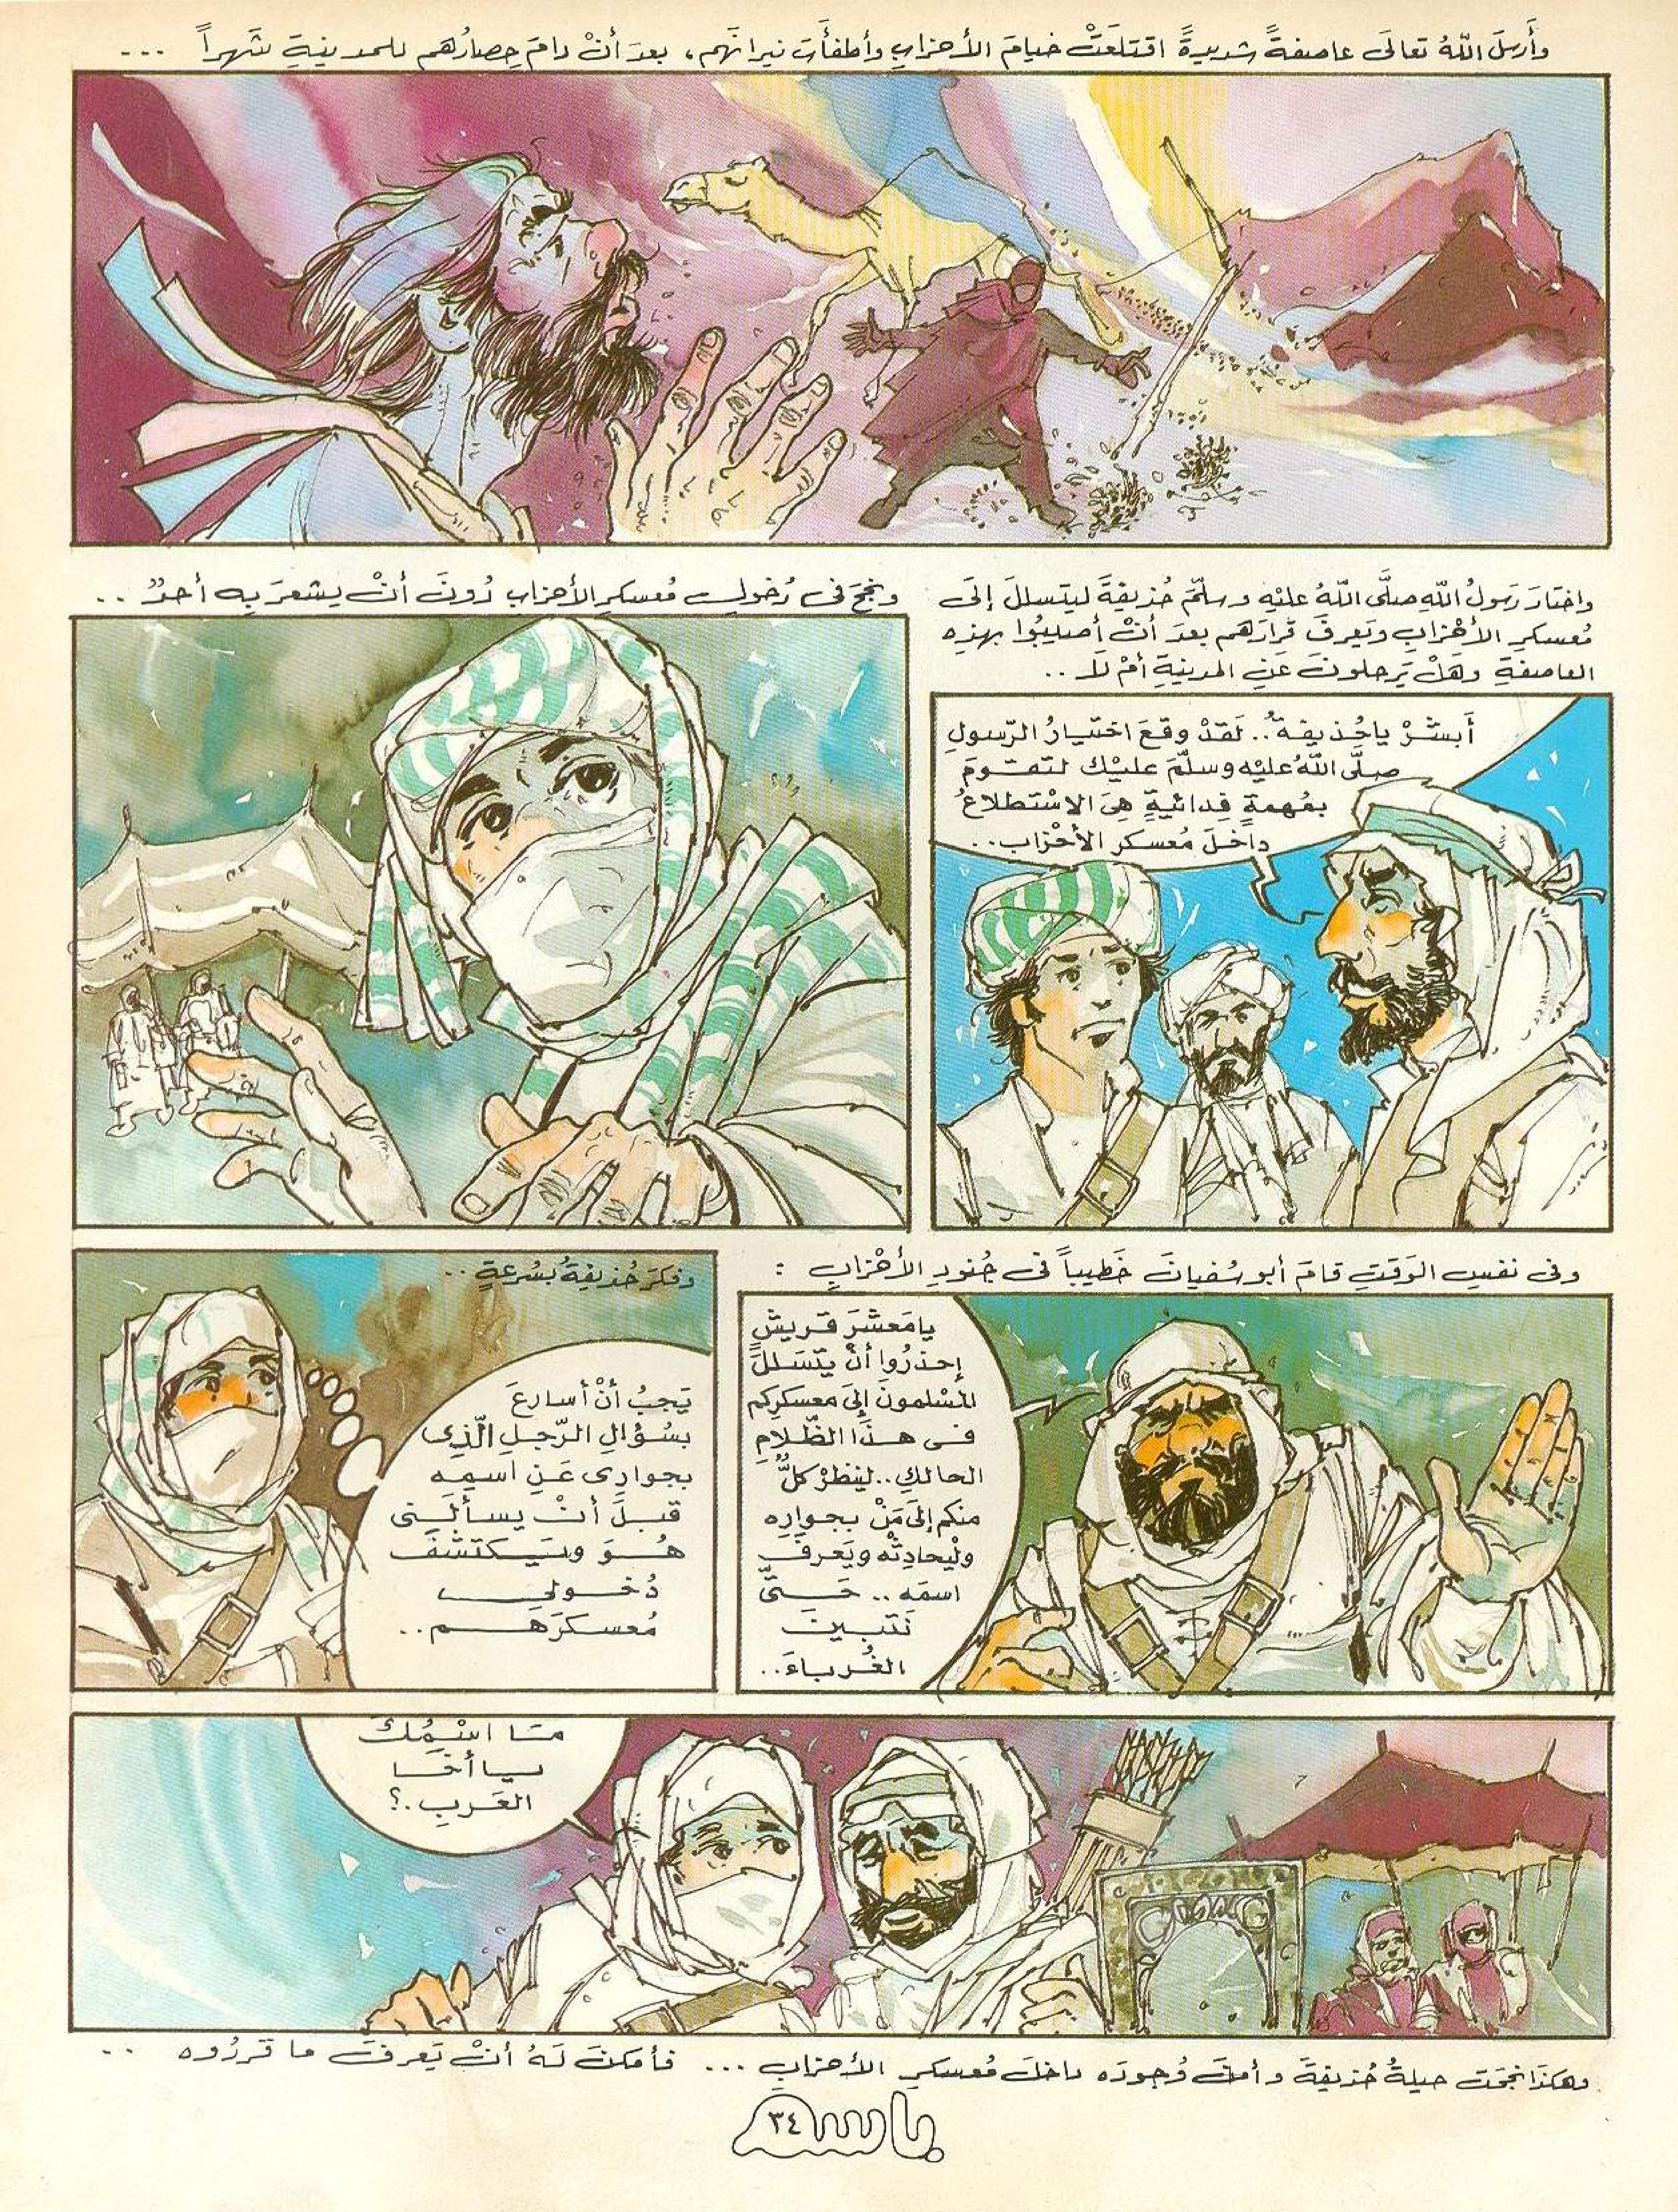 وأَرسلَ اللّهُ تعالَى عاصفةً شديدةً اقتلعَتْ خيامَ الأحزابِ وأطفأَت نيرانَهم، بعدَ أنْ دامَ حِصارُهم للمدينةِ شَهراً ...
واختارَ رَسولُ اللّهِ صلَّى اللّهُ عليْهِ وسلّمَ حُذيفَةَ ليتسللَ إلَى
مُعسكرِ الأحْزابِ ويَعرِفَ قَرارَهم بعدَ أنْ أُصيبُوا بهذِه
العاصفةِ وهَلْ يَرحلونَ عنِ المدينةِ أمْ لا ..
أَبشرْ ياحُذيفةُ.. لَقدْ وقعَ اختيارُ الرّسولِ
صلَّى اللّهُ عليْه وسلّمَ عليْك لتقومَ
بمُهمةٍ فِدائيّةٍ هِىَ الاسْتطلاعُ
داخلَ مُعسكر الأحْزاب..
ونجحَ فى دُخولِ مُعسكرِ الأحزابِ دُونَ أنْ يشعرَ بِه أحدٌ ..
وفى نفسِ الوَقتِ قامَ أبو سُفيانَ خَطيباً فى جُنودِ الأحْزابِ :
يامَعشَرَ قريشٍ
إحذرُوا أنْ يتسَللَ
المسْلمونَ إلَى معسكرِكم
فى هذَا الظّلامِ
الحالكِ.. لينظرْ كلٌّ
منكم إلَى مَنْ بجوارِه
ولْيحادِثْه ويَعرفَ
اسمَه .. حَتَّى
نَتبينَ
الغُرباءَ..
وفكرَ حُذيفةُ بسُرعةٍ ..
يَجبُ أنْ أسارعَ
بسُؤالِ الرّجلِ الّذِى
بجوارِى عَنِ اسمِه
قبلَ أنْ يسألَنِى
هُوَ ويَكتشفَ
دُخولِى
مُعسكرَهم..
مَا اسْمُكَ
يا أخا
العَربِ.؟
وهكذَا نجحَت حيلةُ حُذيفةَ وأمِنَ وُجودَه داخلَ مُعسكرِ الأحزابِ ... فأمكنَ لَهُ أنْ يَعرفَ ما قَررُوه ..
باسم
٣٤